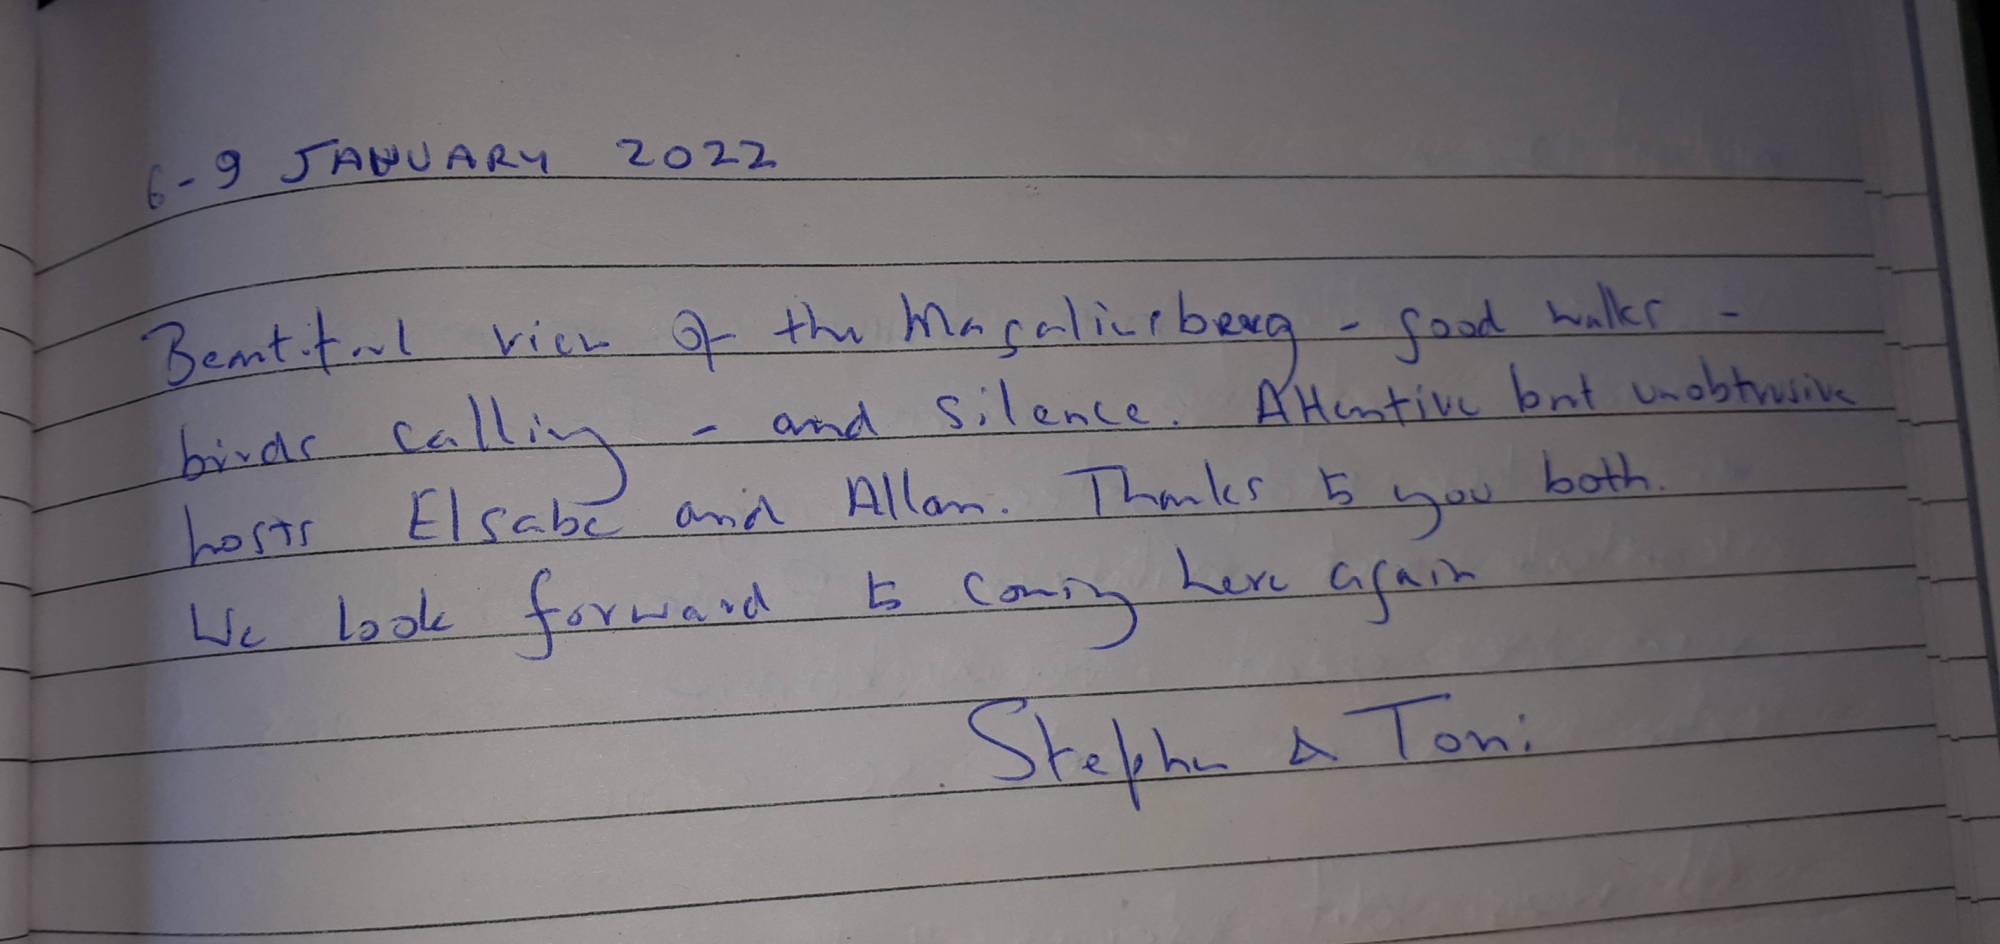 6-9 JANUARY 2022
Beautiful view of the Magaliesberg - good walks -
birds calling - and silence. Attentive but unobtrusive
hosts Elsabe and Allan. Thanks to you both.
We look forward to coming here again
Stephen & Toni